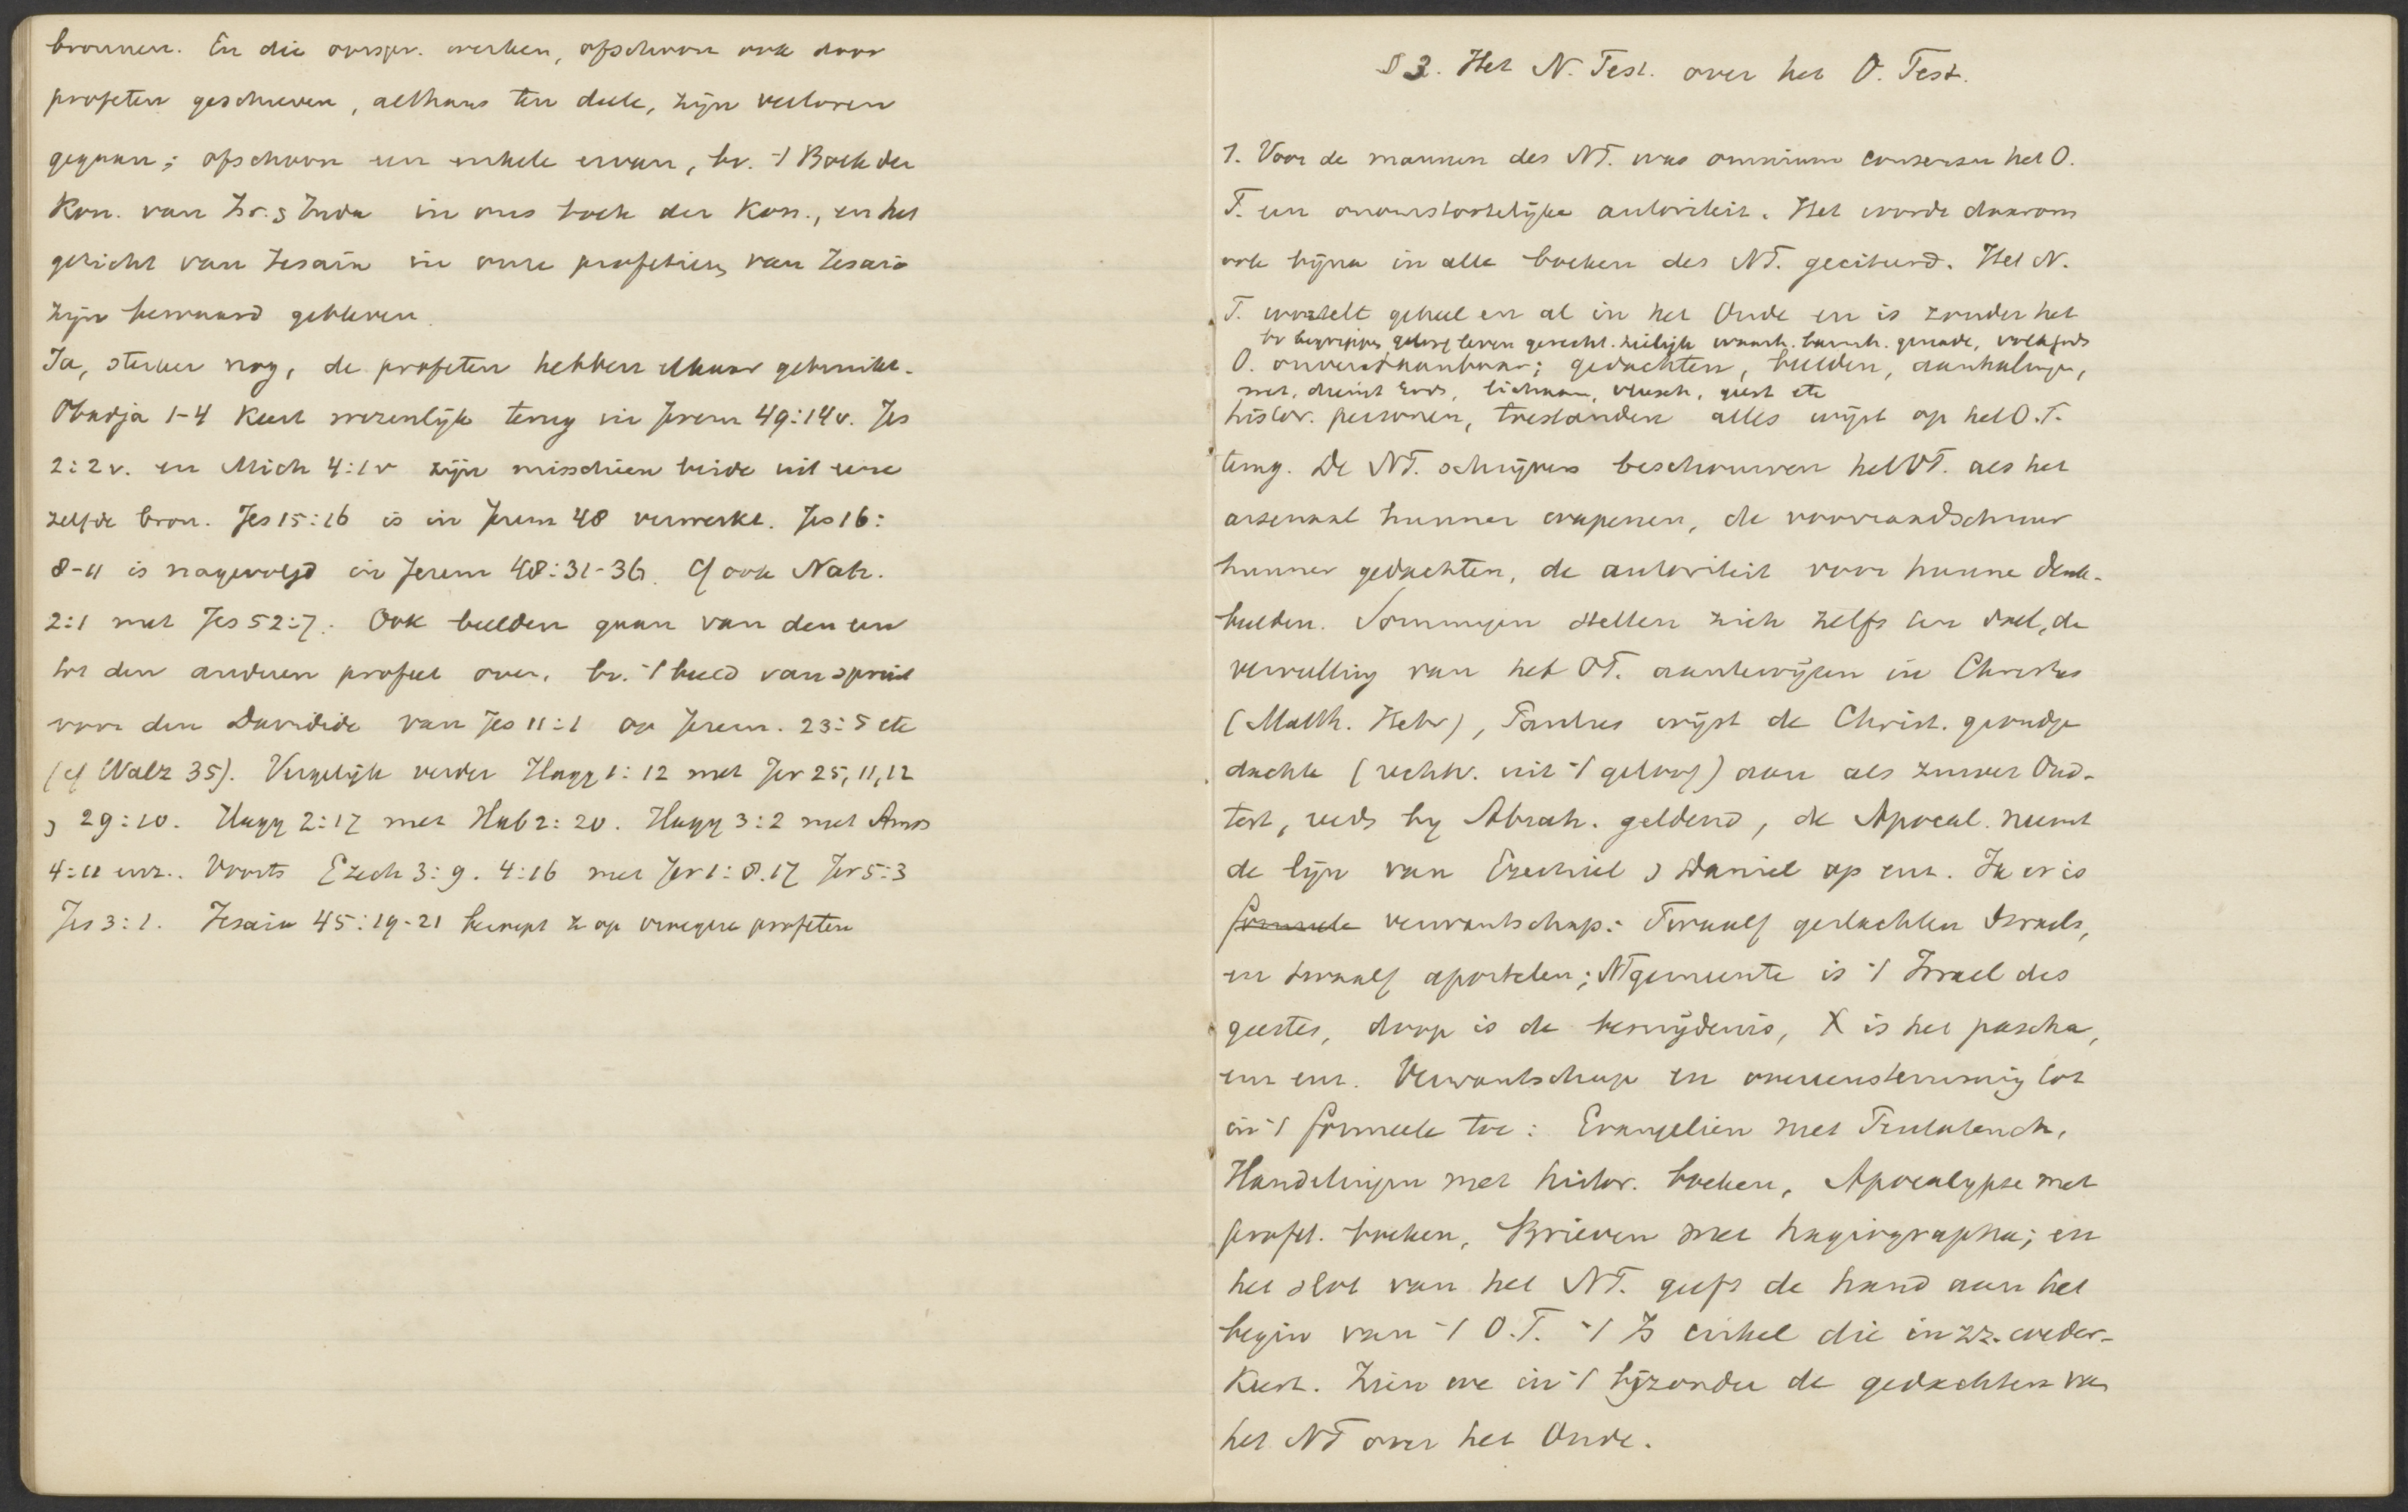 bronnen. En die oorspr. werken, ofschoon ook door
profeten geschreven, althans ten deele, zijn verloren
gegaan; ofschoon een enkele ervan, bv. 't Boek der
Kon. van Isr. & Juda in ons boek der Kon., en het
gezicht van Jesaia in onze profetieën van Jesaia
zijn bewaard gebleven.
Ja, sterker nog, de profeten hebben elkaar gebruikt.
Obadja 1-4 keert wezenlijk terug in Jerem 49:14v. Jes
2:2v. en Mich 4:1v zijn misschien beide uit eene
zelfde bron. Jes 15:16 is in Jerem 48 verwerkt. Jes 16:
8-11 is nagevolgd in Jerem 48:31-36. Cf ook Nah.
2:1 met Jes 52:7. Ook beelden gaan van den een
tot den anderen profeet over, bv. 't beeld van spruit
voor den Davidide van Jes 11:1 op Jerem. 23:5 etc
(cf Walz 35). Vergelijk verder Hagg 1:12 met Jer 25,11,12
& 29:10. Hagg 2:17 met Hab 2:20. Hagg 3:2 met Amos
4:11 enz.. Voorts Ezech 3:9. 4:16 met Jer 1:8.17 Jer 5:3
Jes 3:1. Jesaia 45:19-21 beroept z op vroegere profeten
§ 3. Het N. Test. over het O. Test.
1. Voor de mannen des NT. was omnium consensu het O.
T. een onomstootelijke autoriteit. Het wordt daarom
ook bijna in alle boeken des NT. geciteerd. Het N.
T. wortelt geheel en al in het Oude en is zonder het
bv begrippen geloof leven gerecht. heiligh waarh. barmh. genade, volk Gods
O. onverstaanbaar; gedachten, beelden, aanhalingen,
wet, dienst Gods, lichaam, vleesch, geest etc
histor. personen, toestanden alles wijst op het O.T.
terug. De NT. schrijvers beschouwen het OT. als het
arsenaal hunner wapenen, de voorraadschuur
hunner gedachten, de autoriteit voor hunne denk-
beelden. Sommigen stellen zich zelfs ten doel, de
vervulling van het OT. aantewijzen in Christus
(Matth. Hebr), Paulus wijst de Christ. grondge
dachte (rechtv. uit 't geloof) aan als zuiver Oud-
test, reeds by Abrah. geldend, de Apocal. neemt
de lijn van Ezechiel & Daniel op enz. Ja er is
formeele verwantschap: Twaalf geslachten Israels,
en twaalf apostelen; NTgemeente is 't Israel des
geestes, doop is de besnijdenis, X is het pascha,
enz enz. Verwantschap en overeenstemming tot
in 't formeele toe: Evangelien met Pentateuch,
Handelingen met histor. boeken, Apocalypse met
profet. boeken, Brieven met hagiographa; en
het slot van het NT. geeft de hand aan het
begin van 't O.T. 't Is cirkel die in zz. weder-
keert. Zien we in 't bijzonder de gedachten van
het NT over het Oude.